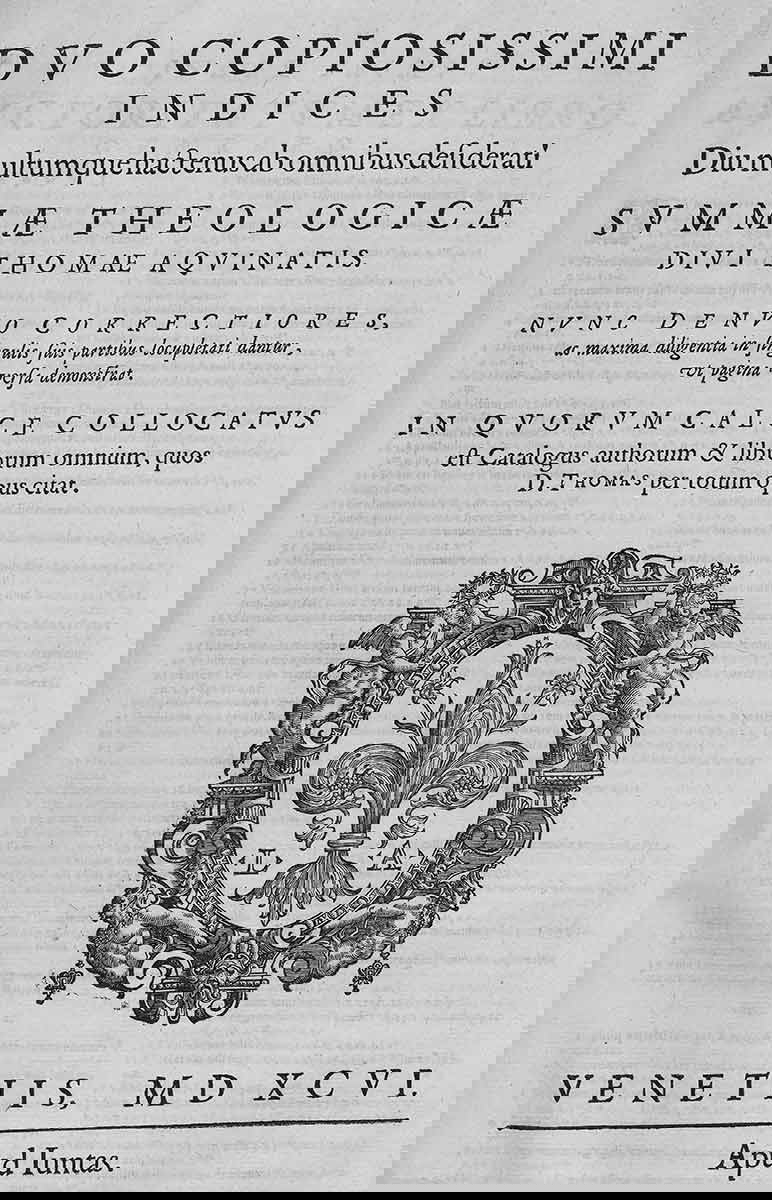 DVO COPIOSISSIMI
INDICES
Diu multumque hactenus ab omnibus desiderati
SVMMÆ THEOLOGICÆ
DIVI THOMAE AQVINATIS.
NVNC DENVO CORRECTIORES,
ac maxima diligentia in singulis suis partibus locupletati dantur,
vt pagina versa demonstrat.
IN QVORVM CALCE COLLOCATVS
est Catalogus authorum & librorum omnium, quos
D. THOMAS per totum opus citat.
L A
VENETIIS, MD XCVI.
Apud Iuntas.